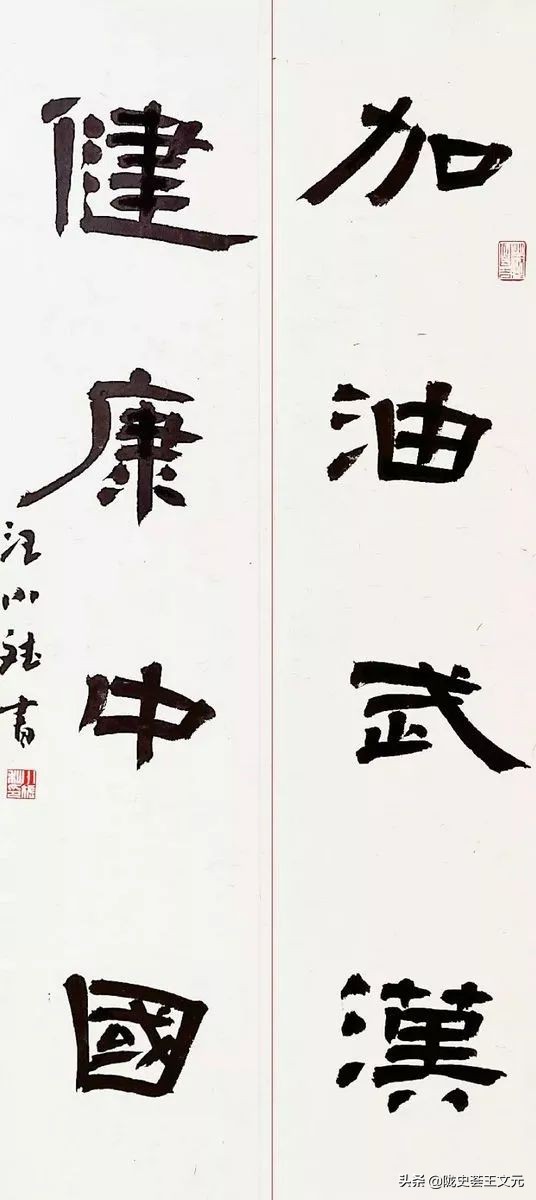 加油武漢
健康中國
汪小書
头条 @陇史荟王文元